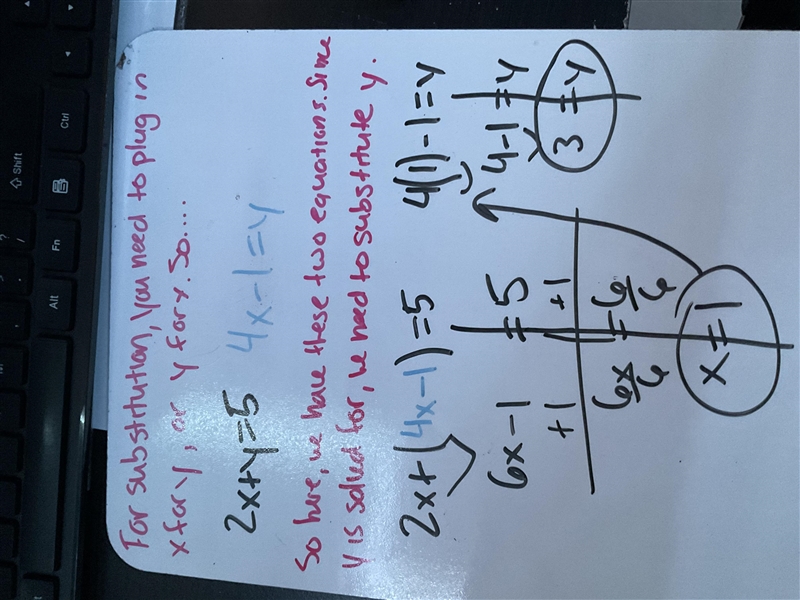 For substitution, you need to plug in
x for y, or y for x. So....
2x+y=5 4x-1=y
So here, we have these two equations. Since
y is solved for, we need to substitute y.
2x+(4x-1)=5
6x-1=5
+1 +1
6x/6 = 6/6
x=1
4(1)-1=y
4-1=y
3=y
Shift
Ctrl
Fn
Alt